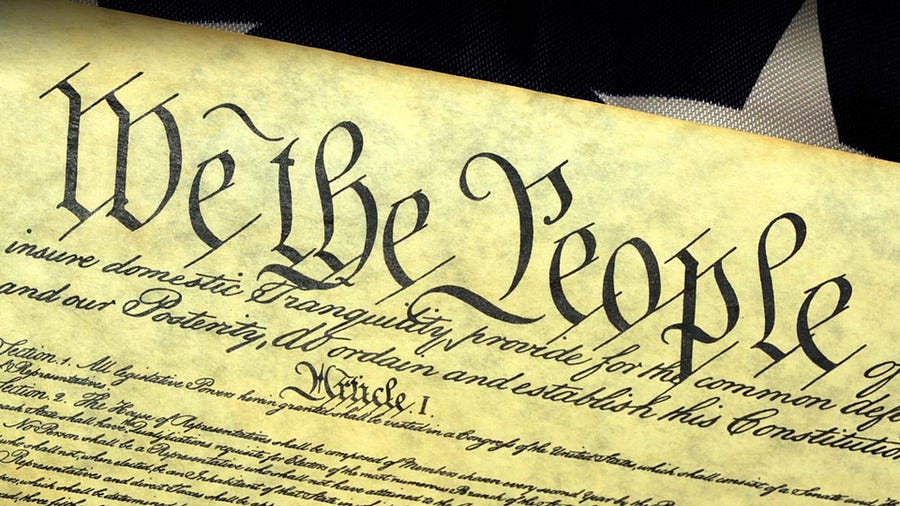 We the People of
insure domestic Tranquility, provide for the common defe
and our Posterity, do ordain and establish this Constitution
Article. I.
Section. 1. All legislative Powers herein granted shall be vested in a Congress of the United States, which shall consist of a Senate and H
Representatives.
Section. 2. The House of Representatives shall be composed of Members chosen every second Year by the P
each State shall have the Qualifications requisite for Electors of the most numerous Branch of the State
No Person shall be a Representative who shall not have attained to the
who shall not, when elected, be an Inhabitant of that State in
Representatives and direct Taxes shall be